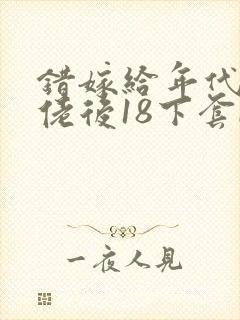 错嫁给年代
佬後18下套
一夜人見